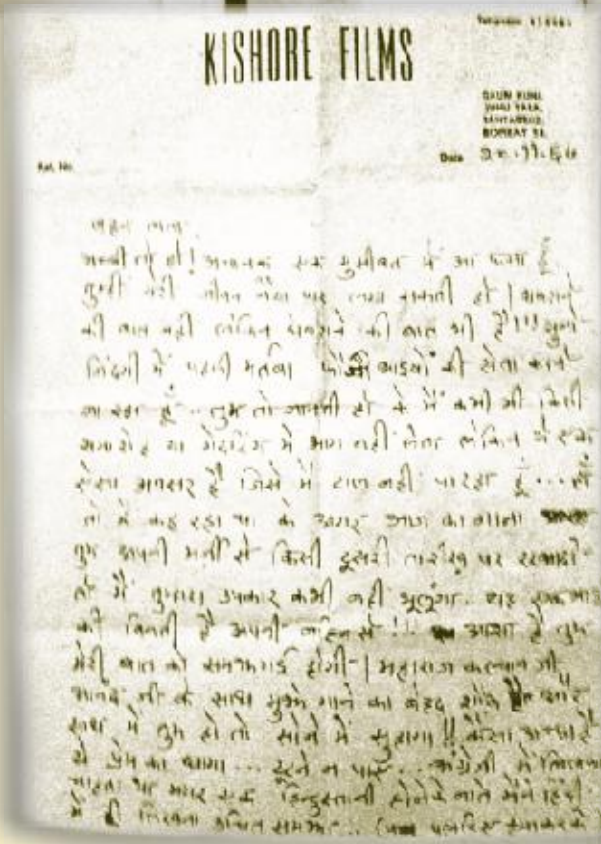 KISHORE FILMS
GAURI KUNJ,
JUHU TARA,
SANTACRUZ,
BOMBAY 54.
Ref. No.
Date
बहन लता,
अच्छी तो हो! अचानक एक मुसीबत में आ फंसा हूँ
तुम्ही मेरी जीवन नैया पार लगा सकती हो | घबराने
की बात नहीं लेकिन घबराने की बात भी है!!!
जिंदगी में पहली मर्तबा फौजी भाइयों की सेवा करने
जा रहा हूँ.. तुम तो जानती हो के मैं कभी भी किसी
समारोह या गेदरिंग में भाग नहीं लेता लेकिन ये एक
ऐसा अवसर है जिसे मैं टाल नहीं पा रहा हूँ ... हाँ
तो मैं कह रहा था के अगर आज का गाना
तुम अपनी मर्ज़ी से किसी दूसरी तारीख पर रखवादो
तो मैं तुम्हारा उपकार कभी नहीं भूलूंगा. यह एक भाई
की बिनती है अपनी बहिन से!! आशा है तुम
मेरी बात को समझ गई होगी | महाराज कल्यान जी
आनंद जी के साथ मुझे गाने का बेहद शौक है और
साथ में तुम हो तो सोने में सुहागा!! कैसा अच्छा है
ये प्रेम का धागा ... टूटने न पाए .. अंग्रेजी में लिखना
चाहता था मगर एक हिन्दुस्तानी होने के नाते मैंने हिंदी
में ही लिखना उचित समझा ..